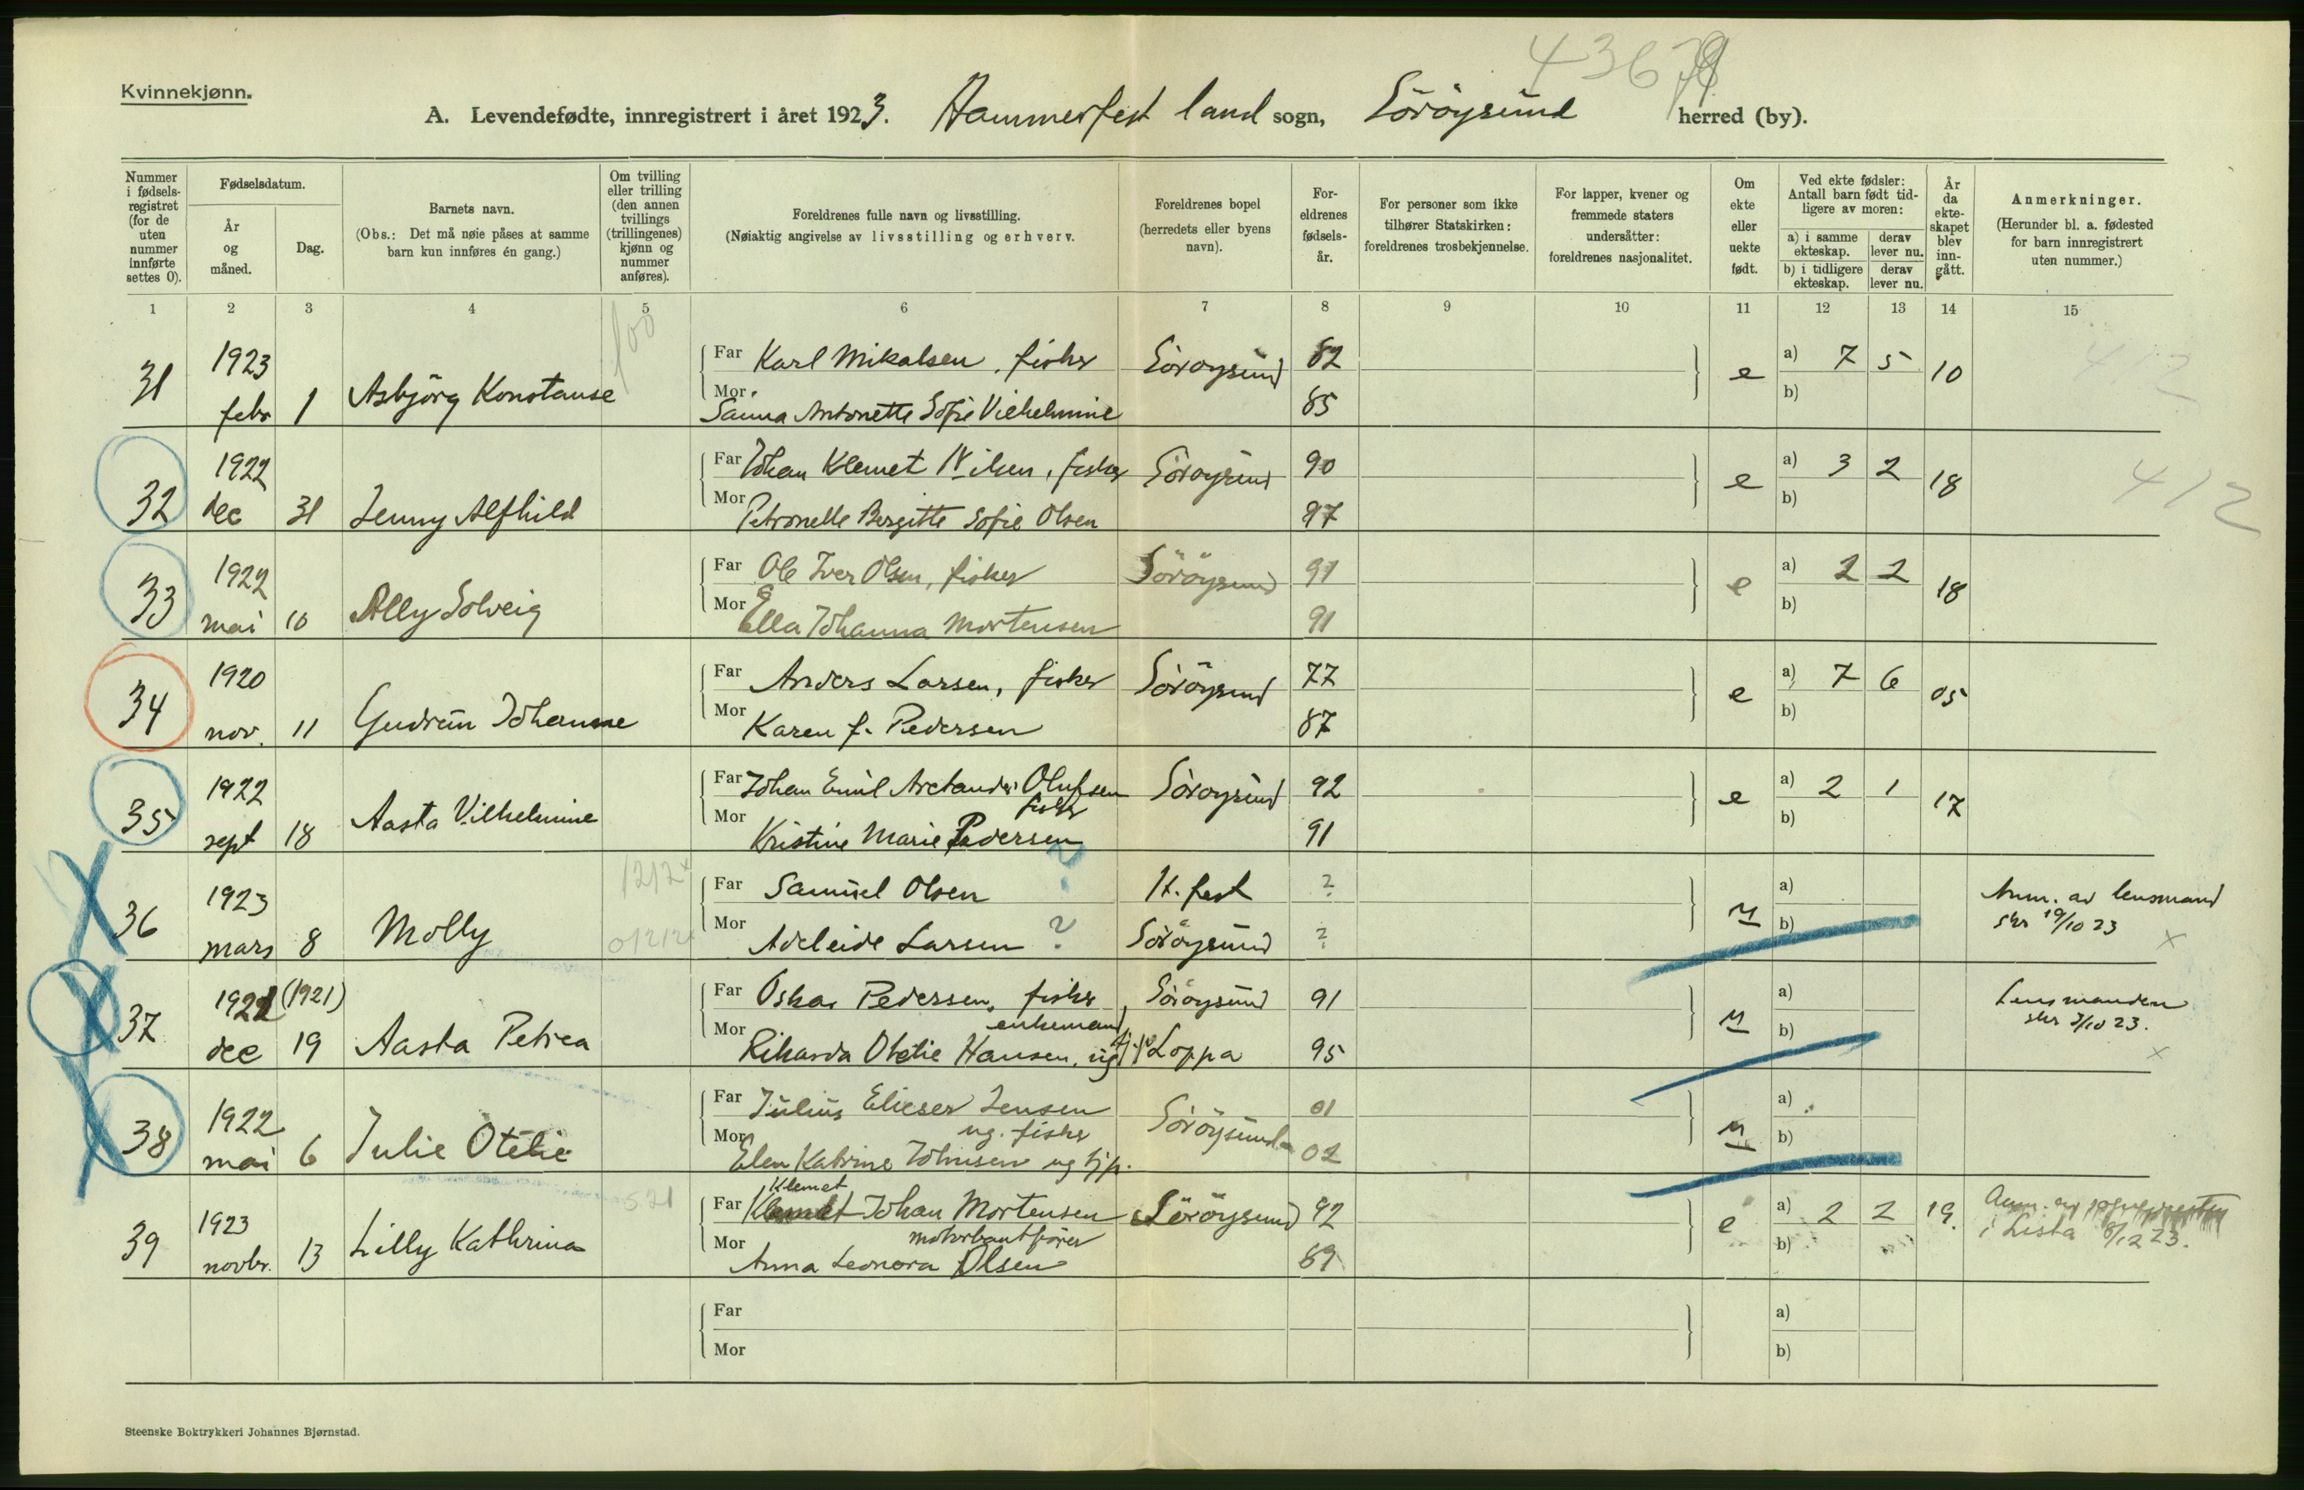 43679
Kvinnekjønn.
A. Levendefødte, innregistrert i året 1923. Hammerfest land sogn, Söröysund herred (by).
Nummer i fødselsregistret (for de uten nummer innførte settes 0).
Fødselsdatum.
År og måned.
Dag.
Barnets navn.
(Obs.: Det må nøie påses at samme barn kun innføres én gang.)
Om tvilling eller trilling (den annen tvillings (trillingenes) kjønn og nummer anføres).
Foreldrenes fulle navn og livsstilling.
(Nøiaktig angivelse av livsstilling og erhverv.
Foreldrenes bopel
(herredets eller byens navn).
Foreldrenes fødselsår.
For personer som ikke tilhører Statskirken: foreldrenes trosbekjennelse.
For lapper, kvener og fremmede staters undersåtter: foreldrenes nasjonalitet.
Om ekte eller uekte født.
Ved ekte fødsler: Antall barn født tidligere av moren:
a) i samme ekteskap. derav lever nu.
b) i tidligere ekteskap. derav lever nu.
År da ekteskapet blev inngått.
Anmerkninger.
(Herunder bl. a. fødested for barn innregistrert uten nummer.)
1 2 3 4 5 6 7 8 9 10 11 12 13 14 15
100
31 1923 febr 1 Asbjörg Konstanse
Far Karl Mikalsen, fisker Söröysund 82 e a) 7 5 10
Mor Sanna Antonette Sofie Vilhelmine 85 b)
412
32 1922 dec 31 Jenny Alfhild
Far Johan Klemet Nilsen, fisker Söröysund 90 e a) 3 2 18
Mor Petronelle Bergitte Sofie Olsen 97 b)
412
33 1922 mai 10 Ally Solveig
Far Ole Iver Olsen, fisker Söröysund 91 e a) 2 2 18
Mor Ella Johanna Mortensen 91 b)
34 1920 nov. 11 Gudrun Johanne
Far Anders Larsen, fisker Söröysund 77 e a) 7 6 05
Mor Karen f. Pedersen 87 b)
35 1922 sept 18 Aasta Vilhelmine
Far Johan Emil Arctander Olufsen fisker Söröysund 92 e a) 2 1 17
Mor Kristine Marie Pedersen 91 b)
36 1923 mars 8 Molly
Far Samuel Olsen ? H.fest ? u a)
Mor Adeleide Larsen ? Söröysund ? b)
Anm. av lensmand
skr 19/10 23
x
37 1922 (1921) dec 19 Aasta Petrea
Far Oskar Pedersen, fisker enkemand Söröysund 91 u a)
Mor Rikarda Otelie Hansen, ug Loppa 95 b)
Lensmanden
skr 3/10 23.
x
38 1922 mai 6 Julie Otelie
Far Julius Elieser Jensen ug. fisker Söröysund 01 u a)
Mor Elen Katrine Johnsen ug tjp. 02 b)
521
39 1923 novbr. 13 Lilly Kathrina
Klemet
Far Klemet Johan Mortensen motorbaatfører Söröysund 92 e a) 2 2 19.
Mor Anna Leonora Olsen 89 b)
i Lista 8/12 23.
Far a)
Mor b)
Steenske Boktrykkeri Johannes Bjørnstad.